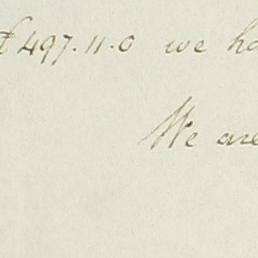 £497.11.0 we ha
We are